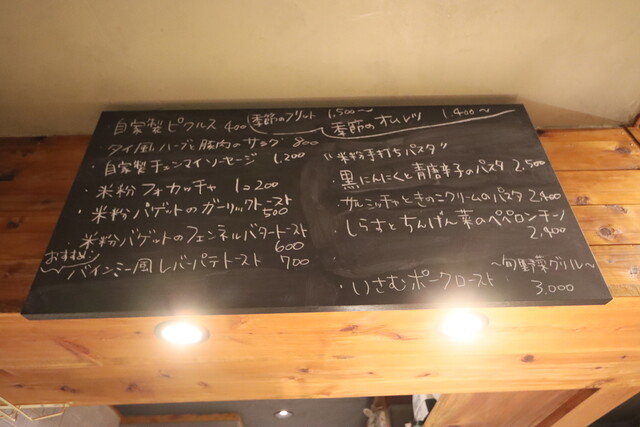 ・自家製ピクルス 400
・タイ風ハーブと豚肉のサラダ 800
・自家製チェンマイソーセージ 1.200
・米粉フォカッチャ 1コ200
・米粉バゲットのガーリックトースト 500
・米粉バゲットのフェンネルバタートースト 600
おすすめ!
バインミー風レバーパテトースト 700
季節のフリット 1.500〜
季節のオムレツ 1.400〜
"米粉手打ちパスタ"
・黒にんにくと青唐辛子のパスタ 2.500
・サルシッチャときのこクリームのパスタ 2.400
・しらすとちんげん菜のペペロンチーノ 2.400
・いさむポークロースト 〜旬野菜グリル〜
3,000